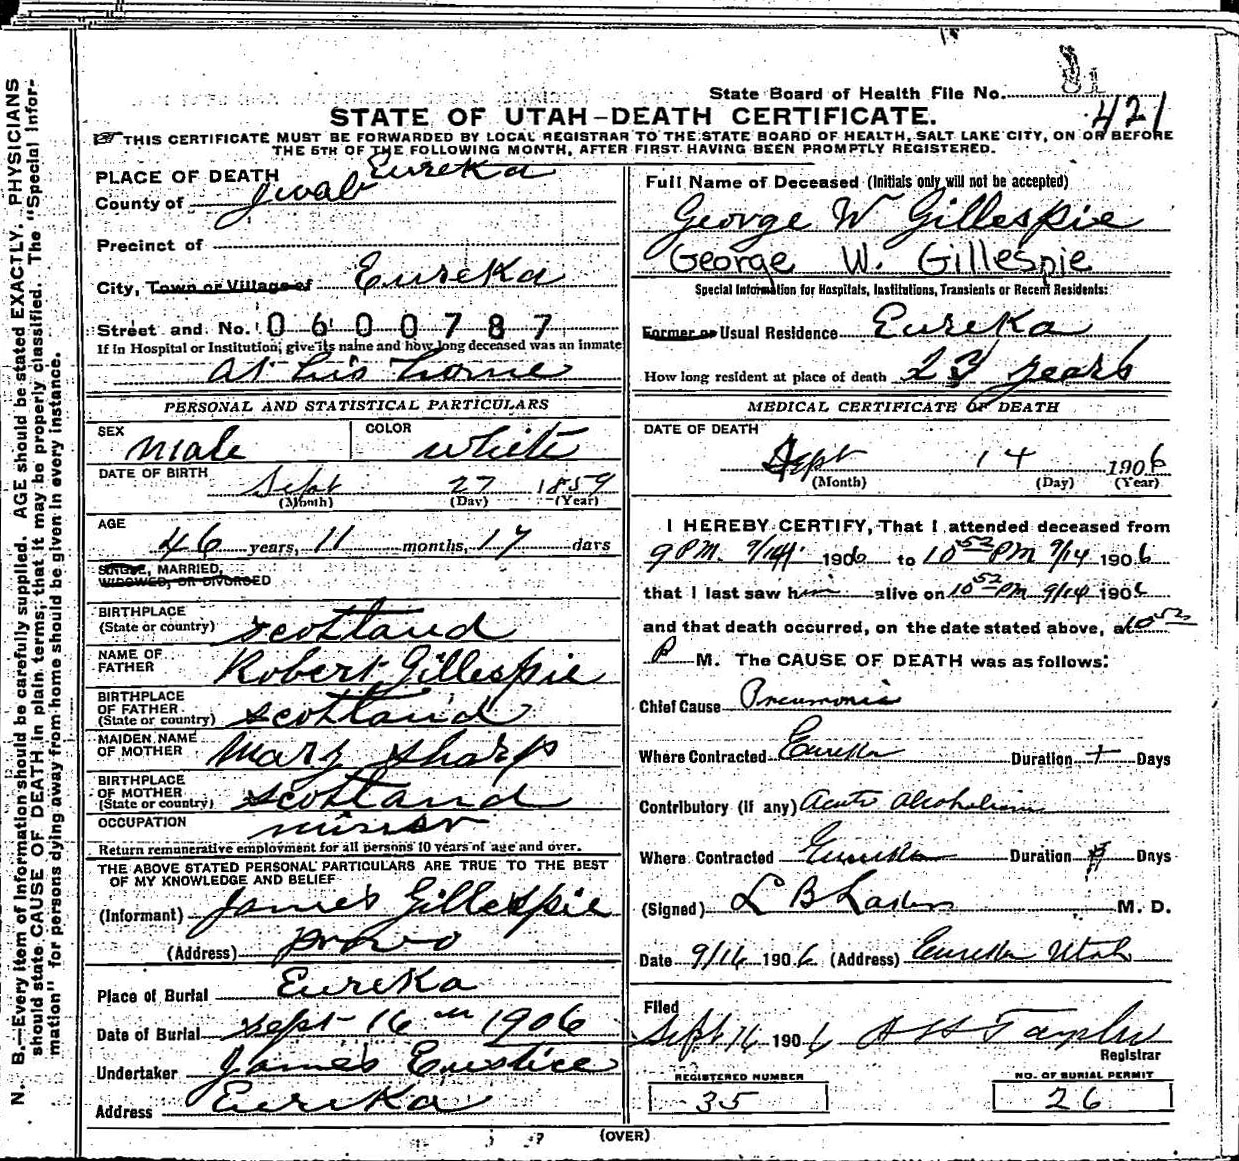 State Board of Health File No. 81
421
STATE OF UTAH—DEATH CERTIFICATE.
THIS CERTIFICATE MUST BE FORWARDED BY LOCAL REGISTRAR TO THE STATE BOARD OF HEALTH, SALT LAKE CITY, ON OR BEFORE
THE 5TH OF THE FOLLOWING MONTH, AFTER FIRST HAVING BEEN PROMPTLY REGISTERED.
N. B.—Every item of information should be carefully supplied. AGE should be stated EXACTLY. PHYSICIANS
should state CAUSE OF DEATH in plain terms, that it may be properly classified. The "Special Infor-
mation" for persons dying away from home should be given in every instance.
PLACE OF DEATH Eureka
County of Juab
Precinct of
City, Town or Village of Eureka
Street and No. 0600787
If in Hospital or Institution, give its name and how long deceased was an inmate
at his home
PERSONAL AND STATISTICAL PARTICULARS
SEX male COLOR white
DATE OF BIRTH Sept 27 1859
(Month) (Day) (Year)
AGE
46 years, 11 months, 17 days
SINGLE, MARRIED,
WIDOWED, OR DIVORCED
BIRTHPLACE
(State or country) Scotland
NAME OF
FATHER Robert Gillespie
BIRTHPLACE
OF FATHER
(State or country) Scotland
MAIDEN NAME
OF MOTHER Mary Sharp
BIRTHPLACE
OF MOTHER
(State or country) Scotland
OCCUPATION miner
Return remunerative employment for all persons 10 years of age and over.
THE ABOVE STATED PERSONAL PARTICULARS ARE TRUE TO THE BEST
OF MY KNOWLEDGE AND BELIEF
(Informant) James Gillespie
(Address) Provo
Place of Burial Eureka
Date of Burial Sept 16th 1906
Undertaker James Eustice
Address Eureka
Full Name of Deceased (Initials only will not be accepted)
George W Gillespie
George W. Gillespie
Special Information for Hospitals, Institutions, Transients or Recent Residents:
Former or Usual Residence Eureka
How long resident at place of death 23 years
MEDICAL CERTIFICATE OF DEATH
DATE OF DEATH
Sept 14 1906
(Month) (Day) (Year)
I HEREBY CERTIFY, That I attended deceased from
9 P.M. 9/14 1906 to 10 52 PM 9/14 1906
that I last saw him alive on 10 52 PM 9/14 1906
and that death occurred, on the date stated above, at 10 52
P M. The CAUSE OF DEATH was as follows:
Chief Cause Pneumonia
Where Contracted Eureka Duration Days
Contributory (if any) Acute Alcoholism
Where Contracted Eureka Duration Days
(Signed) L B M. D.
Date 9/16 1906 (Address) Eureka Utah
Filed
Sept 16 1906 Taylor
Registrar
REGISTERED NUMBER
35
NO. OF BURIAL PERMIT
26
(OVER)